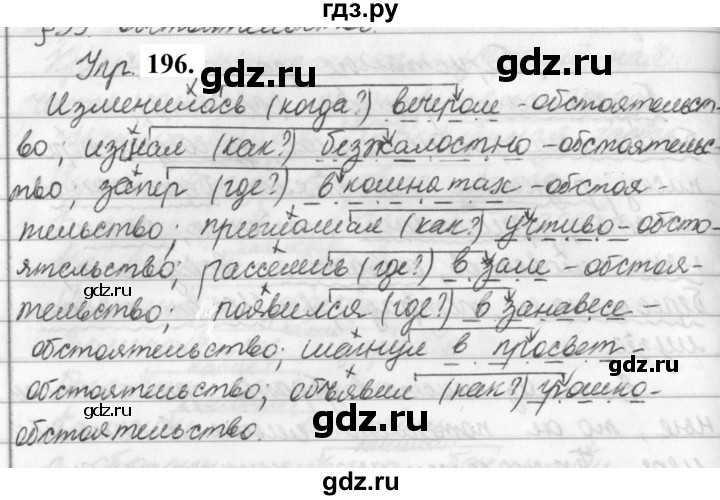 гдз.ру
Упр. 196.
Изменилось (когда?) вечером - обстоятельст-
во; изгнал (как?) безжалостно - обстоятельс-
тво; запер (где?) в комнатах - обстоя-
тельство; приглашал (как?) учтиво - обсто-
ятельство; расселись (где?) в зале - обстоя-
тельство; появился (где?) в занавесе -
обстоятельство; шагнул в просвет -
обстоятельство; объявил (как?) грозно -
обстоятельство.
gdz.ru
gdz.ru
gdz.ru
gdz.ru
gdz.ru
gdz.ru
gdz.ru
gdz.ru
gdz.ru
gdz.ru